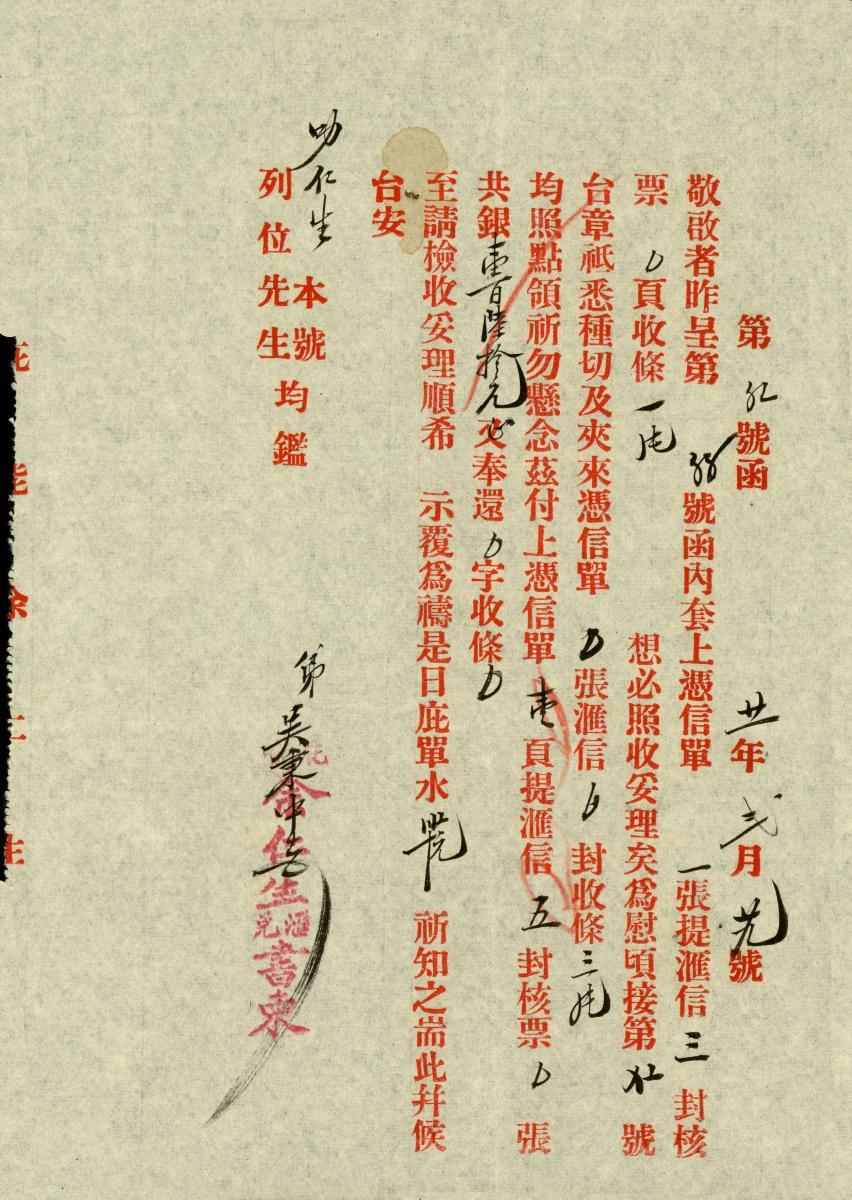 第 號函 廿年 弍月 號
敬啟者昨呈第 號函內套上憑信單 一張提滙信 三 封核
票 頁收條 一 想必照收妥理矣為慰頃接第 號
台章祗悉種切及夾來憑信單 張滙信 封收條 三
均照點領祈勿懸念茲付上憑信單 壹 頁提滙信 五 封核票 張
共銀 壹百陸拾元 又奉還 字收條
至請檢收妥理順希 示覆為禱是日庇單水 祈知之耑此幷候
台安
叻仁生 本號
列位先生均鑑
弟吳秉中
余仁生滙兌書柬